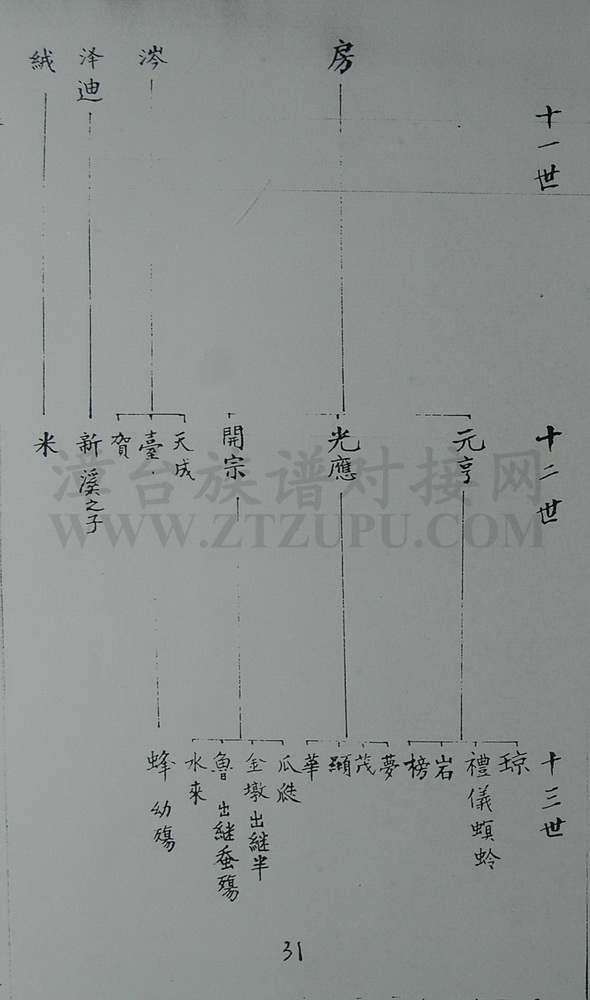 十一世
房
涔
泽迪
絨
十二世
元亨
光應
開宗
天成
臺
賀
新 溪之子
米
十三世
琼
禮儀 螟蛉
岩
榜
夢
茂
顯
華
瓜
金墩 出継半
魯 出継蚕殤
水來
蜂 幼殤
漳台族谱对接网
WWW.ZTZUPU.COM
31